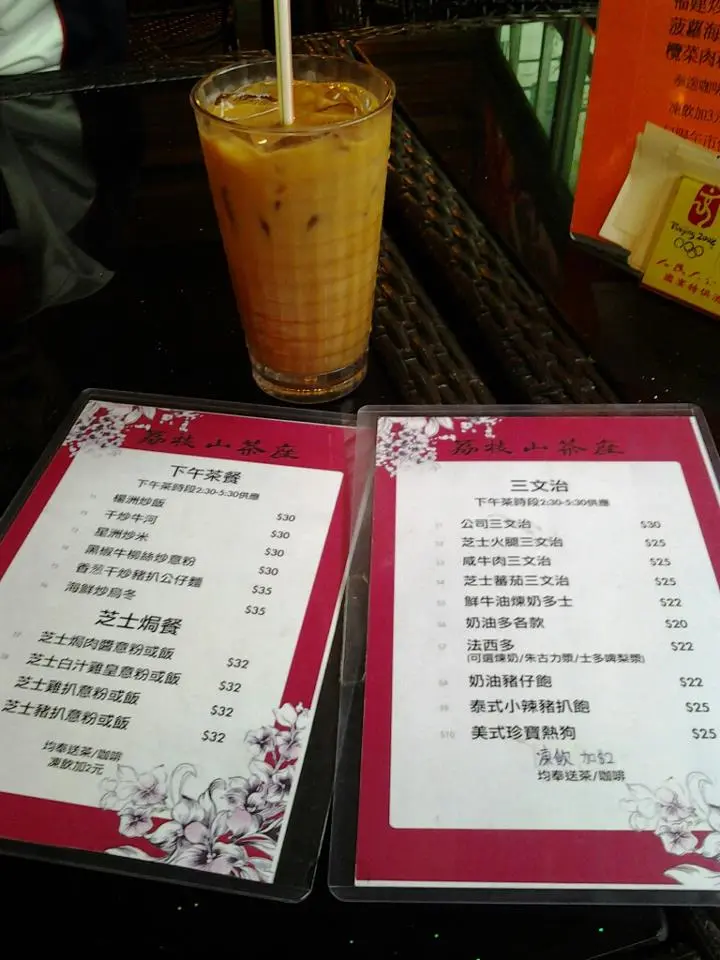 荔枝山茶座
下午茶餐
下午茶時段2:30-5:30供應
楊洲炒飯 $30
干炒牛河 $30
星洲炒米 $30
黑椒牛柳絲炒意粉 $35
香葱干炒豬扒公仔麵 $35
海鮮炒烏冬
芝士焗餐
芝士焗肉醬意粉或飯 $32
芝士白汁雞皇意粉或飯 $32
芝士雞扒意粉或飯 $32
芝士豬扒意粉或飯 $32
均奉送茶/咖啡
凍飲加2元
荔枝山茶座
三文治
下午茶時段2:30-5:30供應
公司三文治 $30
芝士火腿三文治 $25
咸牛肉三文治 $25
芝士蕃茄三文治 $25
鮮牛油煉奶多士 $22
奶油多各款 $20
法西多 $22
(可選煉奶/朱古力漿/士多啤梨漿)
奶油豬仔飽 $22
泰式小辣豬扒飽 $25
S10 美式珍寶熱狗 $25
凍飲 加$2
均奉送茶/咖啡
福建炒
菠蘿海
欖菜肉
奉送咖啡
凍飲加3元
Beijing 2008